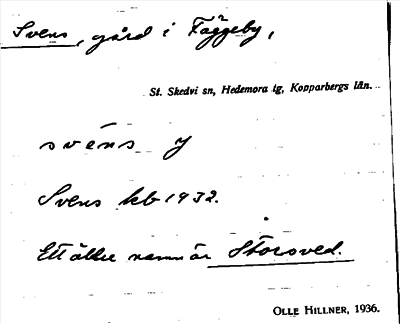 Svens, gård i Fäggeby,
St. Skedvi sn, Hedemora tg, Kopparbergs län.
svéns y
Svens kb 1932.
Ett äldre namn är Storsved.
OLLE HILLNER, 1936.